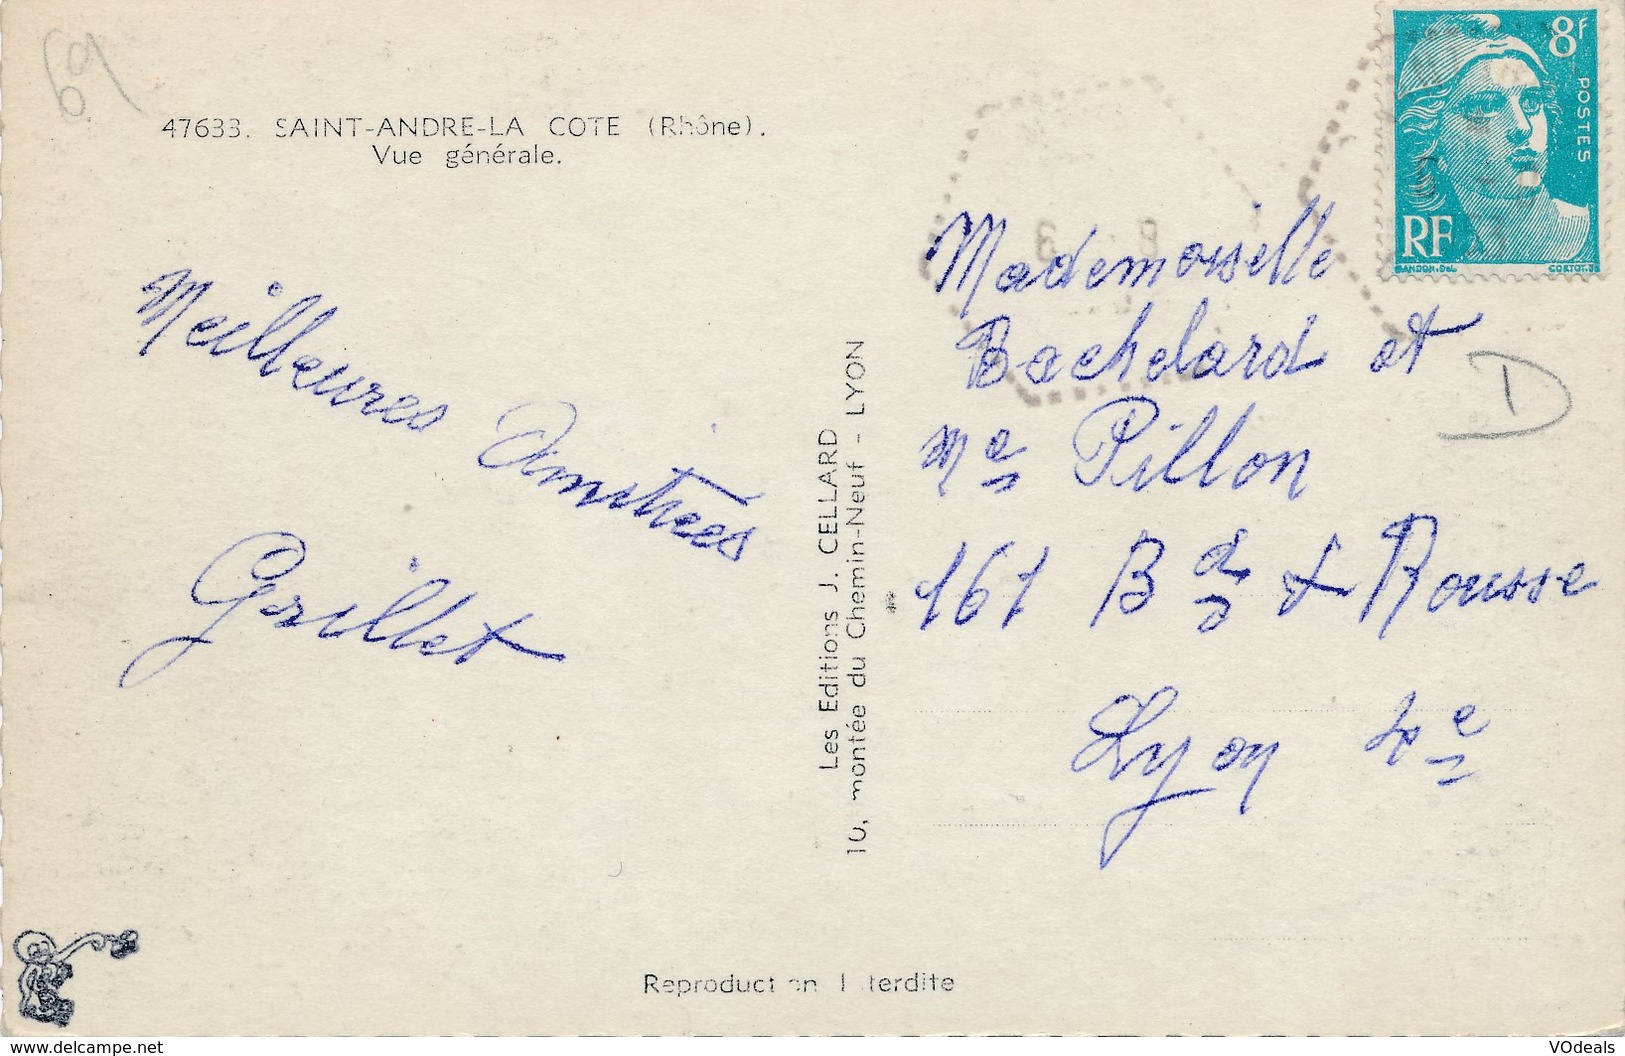 69
47633. SAINT-ANDRE-LA COTE (Rhône).
Vue générale.
Meilleures Amitiées
Grillet
Les Editions J. CELLARD
10, montée du Chemin-Neuf - LYON
8F
POSTES
RF
GANDON.Del
CORTOT.SC
Mademoiselle
Bachelard et
Me Pillon
D
161 Bd + Rousse
Lyon 4e
Reproduction Interdite
www.delcampe.net
VOdeals